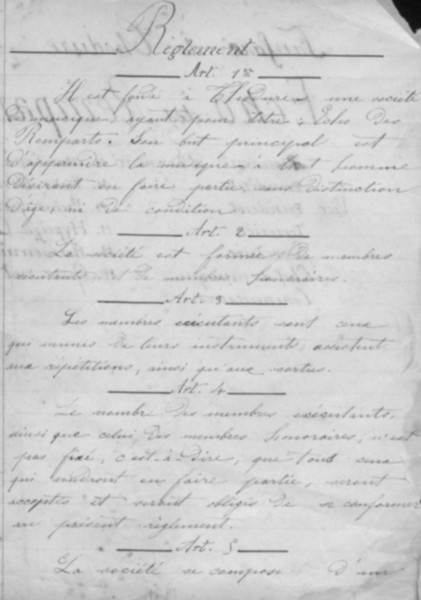 Règlement
Art. 1er
Il est fondé à une société
Dénommée ayant pour titre : Echo Des
Remparts. Son but principal est
D'apprendre la musique à tout homme
Désirant en faire partie, sans distinction
D'âge, ni De condition.
Art. 2
La société est formée De membres
exécutants et De membres honoraires.
Art. 3
Les membres exécutants sont ceux
qui munis De leurs instruments assistent
aux répétitions, ainsi qu'aux sorties.
Art. 4
Le nombre Des membres exécutants,
ainsi que celui Des membres honoraires, n'est
pas fixé, c'est-à-Dire, que tous ceux
qui voudront en faire partie, seront
acceptés et seront obligés De se conformer
au présent règlement.
Art. 5
La société se compose D'un